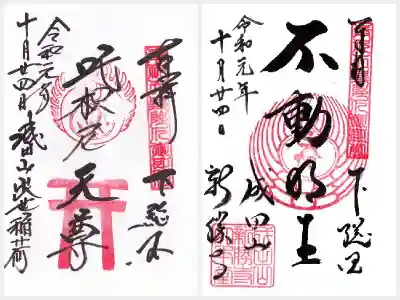 奉拝 下総国
吒枳尼天尊
令和元年
十月廿四日 成田山出世稲荷
奉拝 下総国
不動明王
成田山 新勝寺
令和元年
十月廿四日